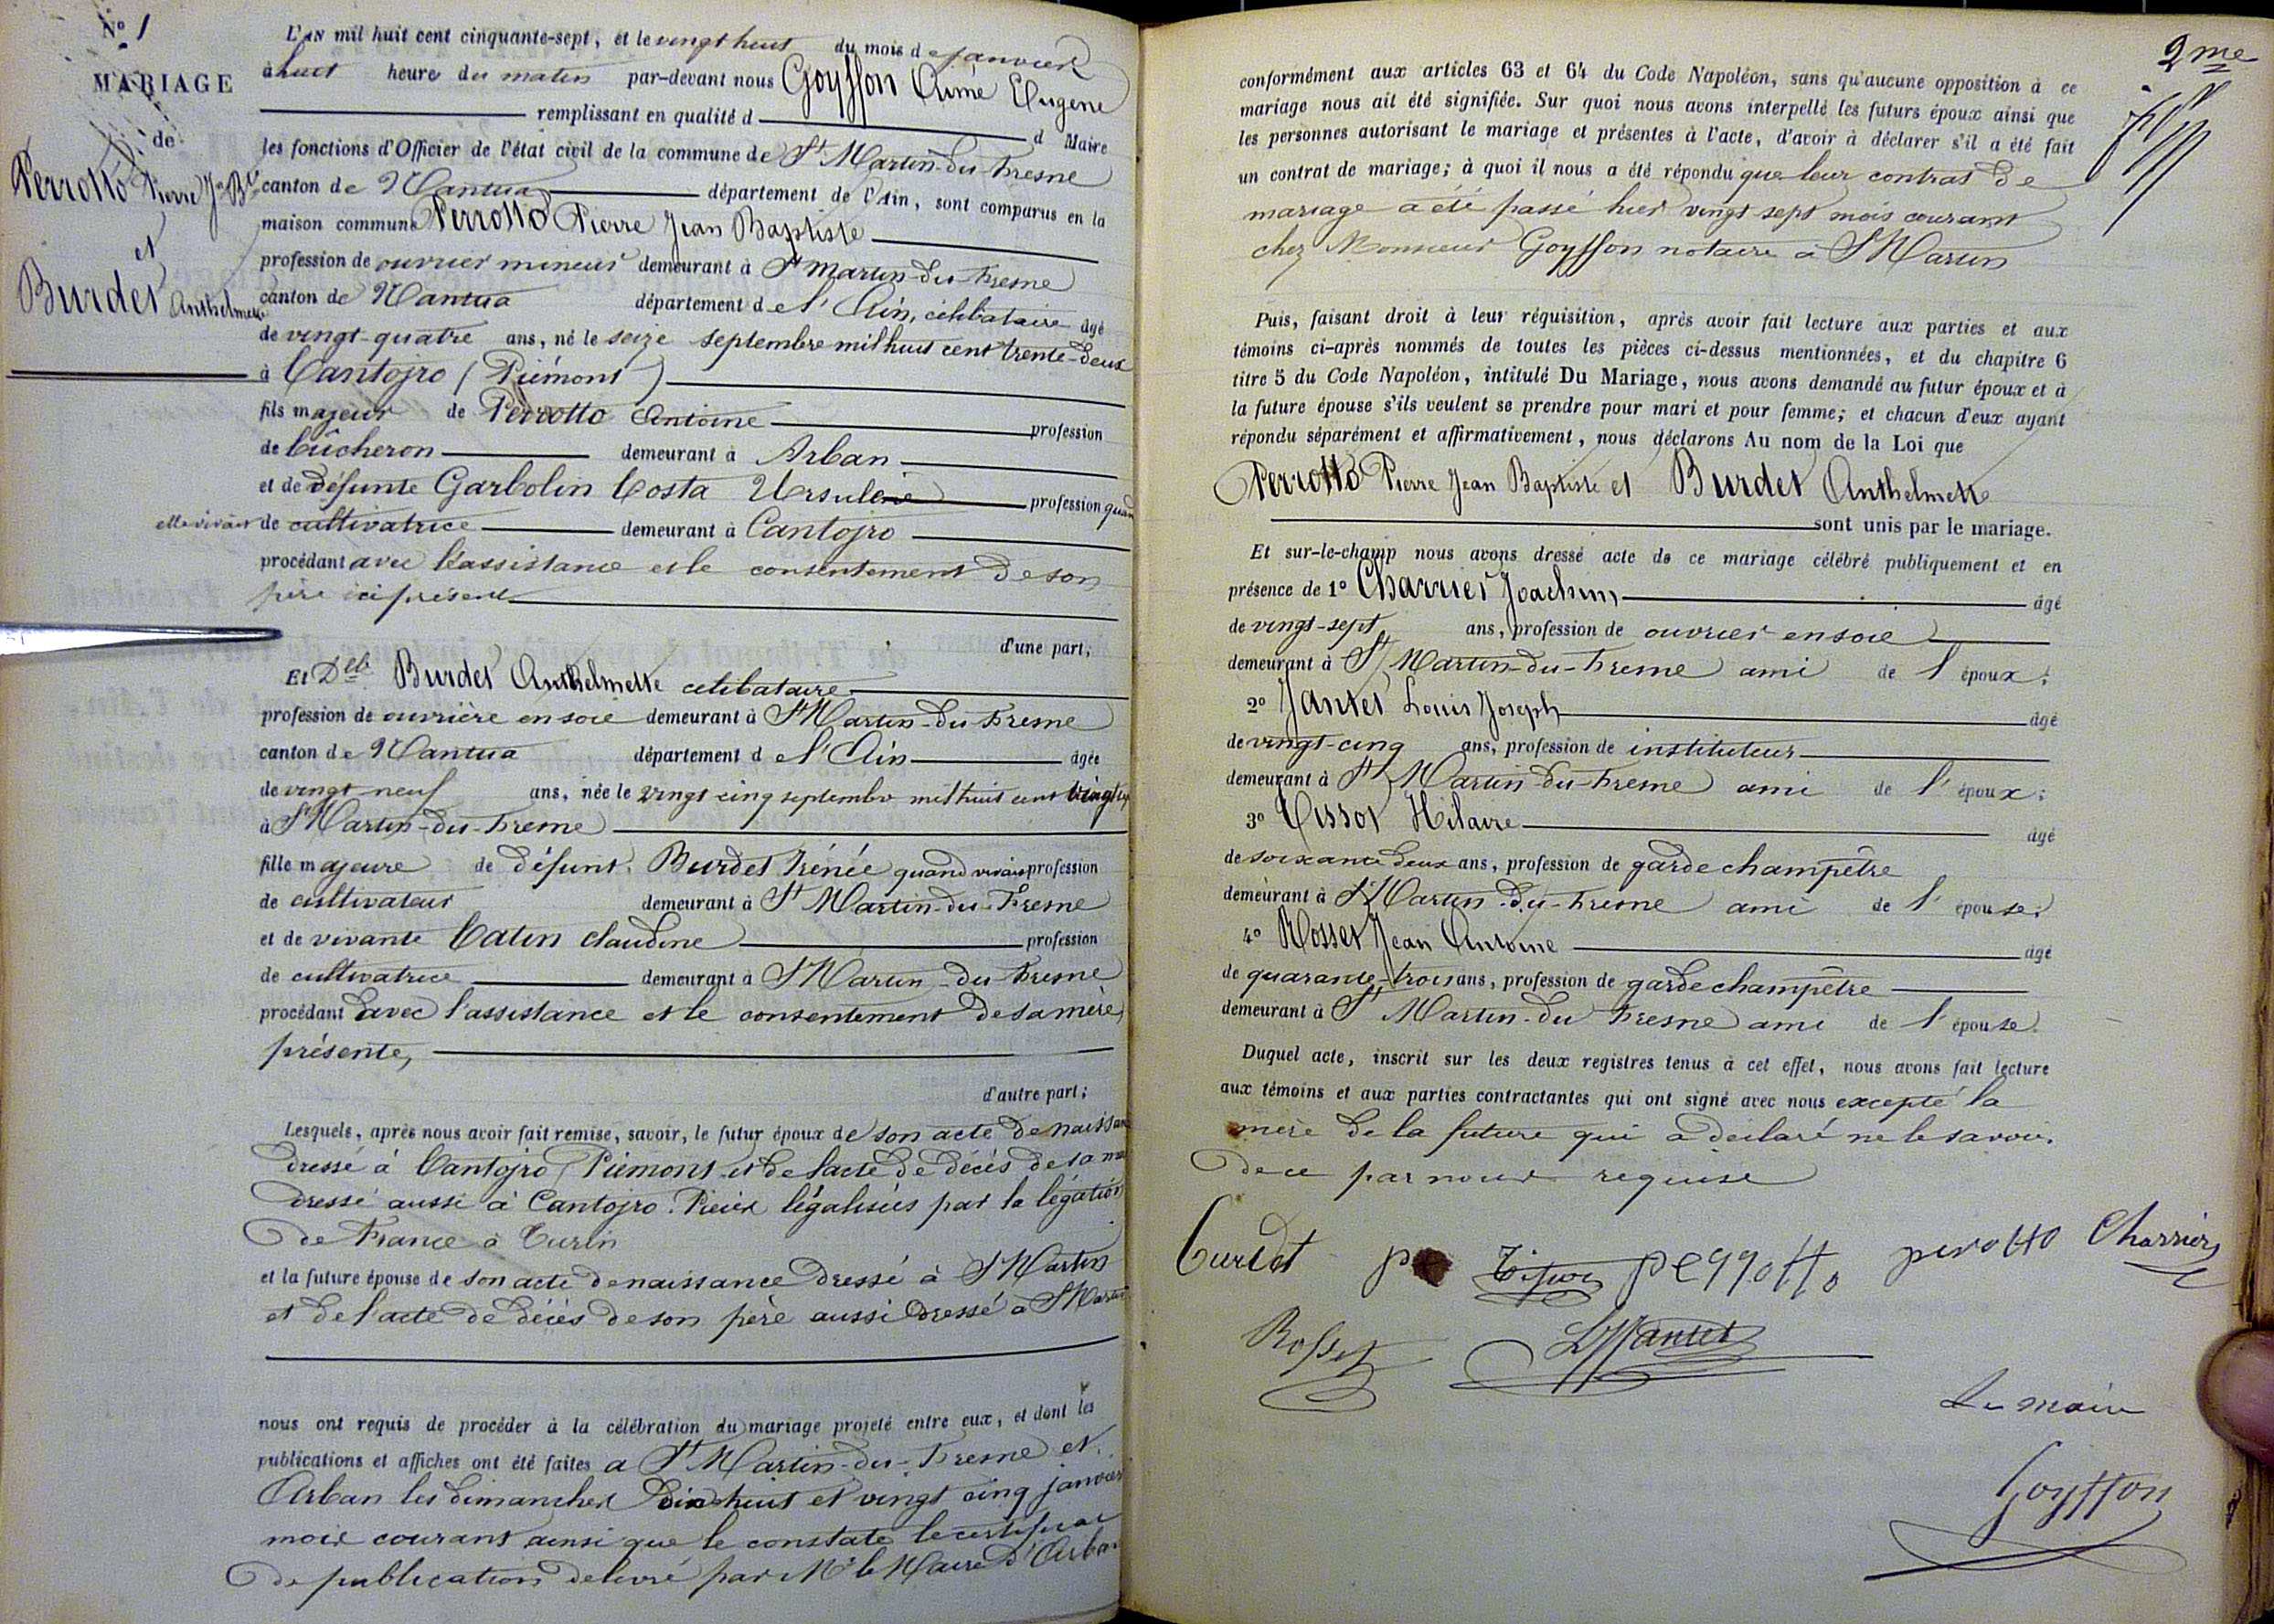 N° 1
MARIAGE
de
Perrotto Pierre Jn Bte
et
Burdet Anthelmette
L'AN mil huit cent cinquante-sept, et le vingt huit du mois de janvier
à huit heure du matin par-devant nous Goyffon Aimé Eugène
remplissant en qualité d d Maire
les fonctions d'Officier de l'état civil de la commune de St Martin-du-Fresne
canton de Nantua département de l'Ain, sont comparus en la
maison commune Perrotto Pierre Jean Baptiste
profession de ouvrier mineur demeurant à St Martin-du-Fresne
canton de Nantua département de l'Ain, célibataire âgé
de vingt-quatre ans, né le seize septembre mil huit cent trente-deux
à Cantojro (Piémont)
fils majeur de Perrotto Antoine profession
de bûcheron demeurant à Arban
et de défunte Garbolin Costa Ursule profession quand
elle vivait de cultivatrice demeurant à Cantojro
procédant avec l'assistance et le consentement de son
père ici présent
d'une part;
Et Dlle Burdet Anthelmette célibataire
profession de ouvrière en soie demeurant à St Martin-du-Fresne
canton de Nantua département de l'Ain âgée
de vingt neuf ans, née le vingt cinq septembre mil huit cent vingt sept
à St Martin-du-Fresne
fille majeure de défunt Burdet Irénée quand vivait profession
de cultivateur demeurant à St Martin-du-Fresne
et de vivante Catin Claudine profession
de cultivatrice demeurant à St Martin-du-Fresne
procédant avec l'assistance et le consentement de sa mère,
présente,
d'autre part;
Lesquels, après nous avoir fait remise, savoir, le futur époux de son acte de naissance
dressé à Cantojro Piémont et de l'acte de décès de sa
dressé aussi à Cantojro. Pièces légalisées par la légation
de France à Turin
et la future épouse de son acte de naissance dressé à St Martin
et de l'acte de décès de son père aussi dressé à St Martin
nous ont requis de procéder à la célébration du mariage projeté entre eux, et dont les
publications et affiches ont été faites a St Martin-du-Fresne et
Arban les dimanches dix huit et vingt cinq janvier
mois courant ainsi que le constate le certificat
de publication délivré par Mr le Maire d'Arban
2me
conformément aux articles 63 et 64 du Code Napoléon, sans qu'aucune opposition à ce
mariage nous ait été signifiée. Sur quoi nous avons interpellé les futurs époux ainsi que
les personnes autorisant le mariage et présentes à l'acte, d'avoir à déclarer s'il a été fait
un contrat de mariage; à quoi il nous a été répondu que leur contrat de
mariage a été passé hier vingt sept mois courant
chez Monsieur Goyffon notaire à St Martin
Puis, faisant droit à leur réquisition, après avoir fait lecture aux parties et aux
témoins ci-après nommés de toutes les pièces ci-dessus mentionnées, et du chapitre 6
titre 5 du Code Napoléon, intitulé Du Mariage, nous avons demandé au futur époux et à
la future épouse s'ils veulent se prendre pour mari et pour femme; et chacun d'eux ayant
répondu séparément et affirmativement, nous déclarons Au nom de la Loi que
Perrotto Pierre Jean Baptiste et Burdet Anthelmette
sont unis par le mariage.
Et sur-le-champ nous avons dressé acte de ce mariage célébré publiquement et en
présence de 1° Charrier Joachim âgé
de vingt-sept ans, profession de ouvrier en soie
demeurant à St Martin-du-Fresne ami de l'époux;
2° Jantet Louis Joseph âgé
de vingt-cinq ans, profession de instituteur
demeurant à St Martin-du-Fresne ami de l'époux;
3° Tissot Hilaire âgé
de soixante deux ans, profession de garde champêtre
demeurant à St Martin-du-Fresne ami de l'épouse;
4° Rosset Jean Antoine âgé
de quarante-trois ans, profession de garde champêtre
demeurant à St Martin-du Fresne ami de l'épouse.
Duquel acte, inscrit sur les deux registres tenus à cet effet, nous avons fait lecture
aux témoins et aux parties contractantes qui ont signé avec nous excepté la
mère de la future qui a déclaré ne le savoir.
de ce par nous requise
Burdet Tissot perrotto perotto Charrier
Rosset LJJantet
Le maire
Goyffon